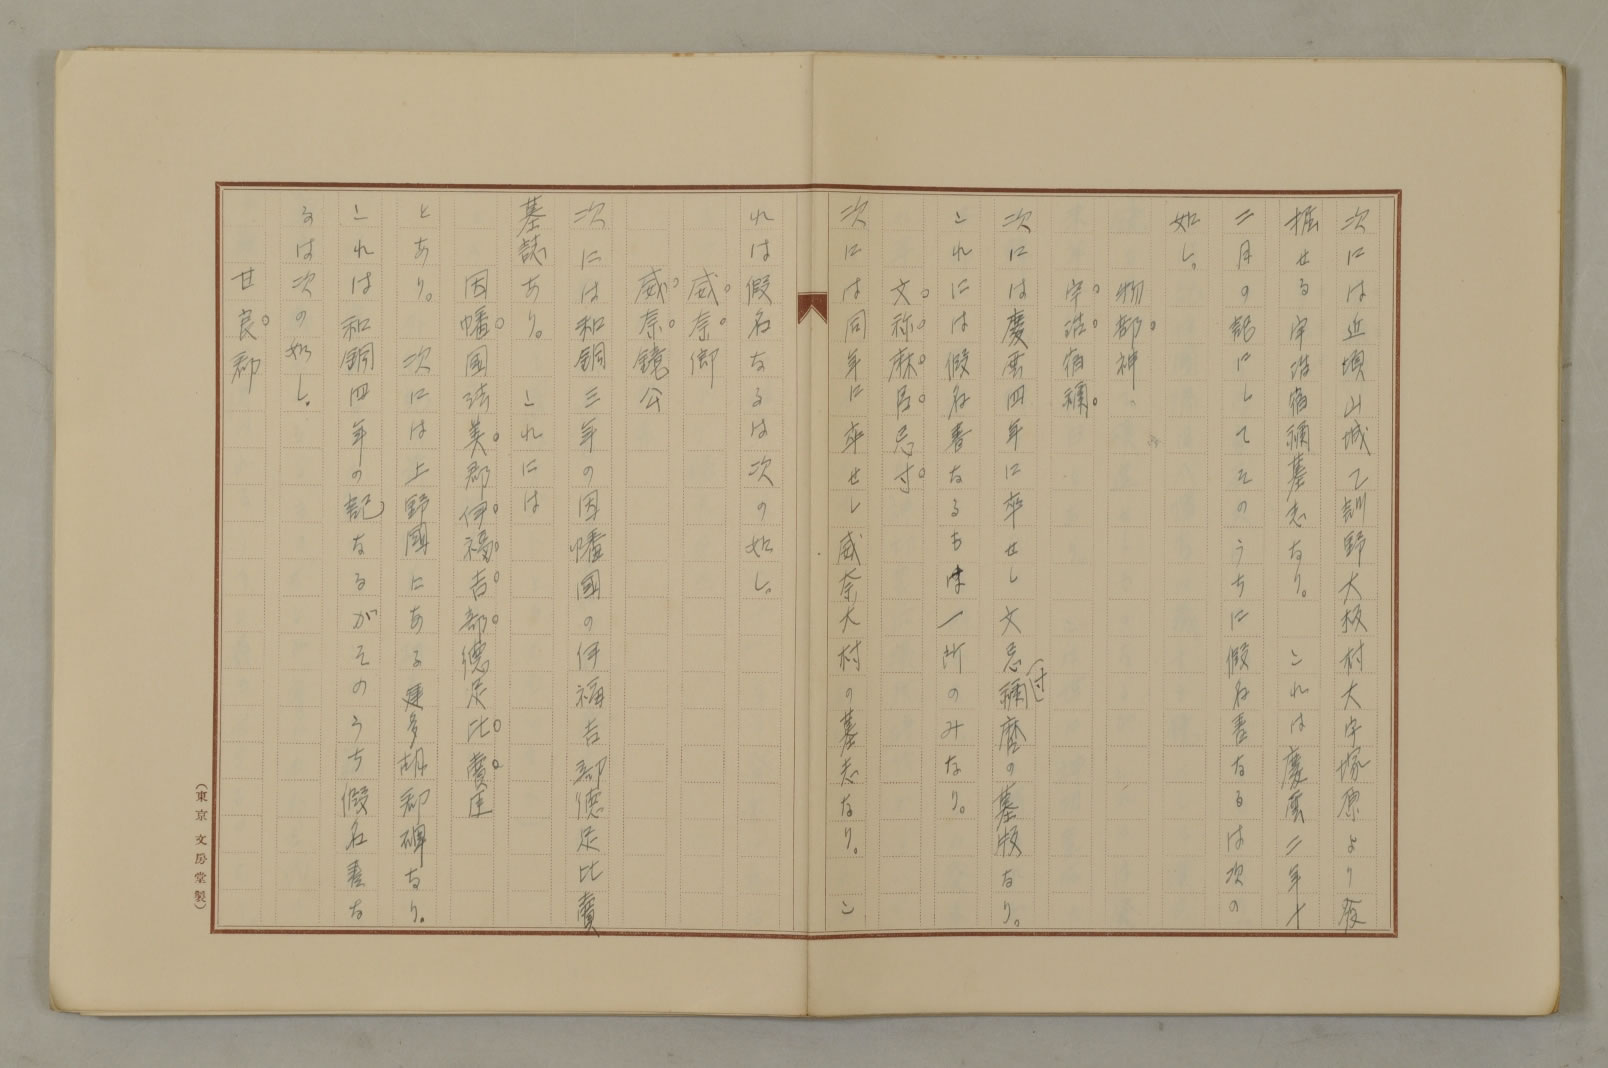 次には近頃山城乙訓野大板村大字塚原より発
掘せる宇治宿禰墓志なり。これは慶雲二年十
二月の記にしてそのうちに假名書なるは次の
如し。
物部神。
宇治宿禰。
次には慶雲四年に卒せし文忌(寸)禰麿の墓版なり。
これには假名書なるもは一所のみなり。
文祢麻呂忌寸。
次には同年に卒せし威奈大村の墓志なり。こ
れは假名なるは次の如し。
威奈卿
威奈鏡公
次には和銅三年の因幡國の伊福吉部德足比賣
墓誌あり。これには
因幡國法美郡伊福吉部德足比賣臣
とあり。次には上野國にある建多胡郡碑なり。
これは和銅四年の記なるがそのうち假名書な
るは次の如し。
甘良郡
(東京文房堂製)